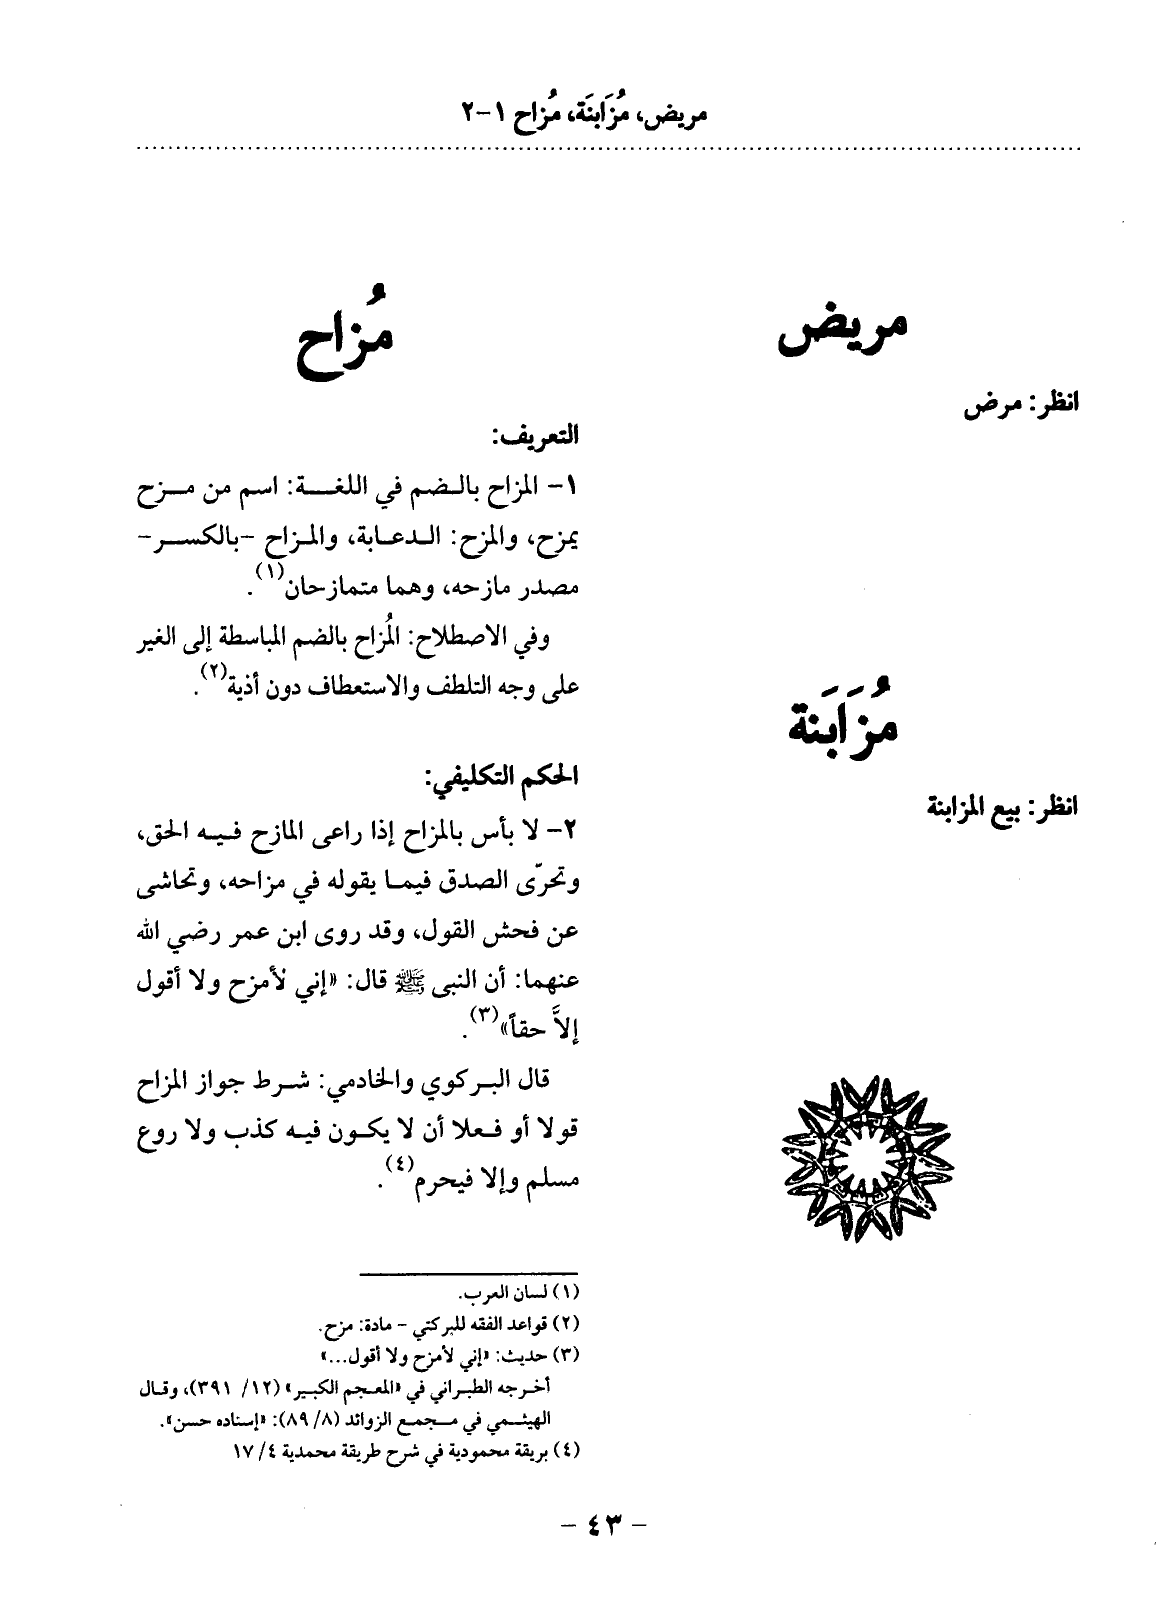 مريض، مُزَابنَة، مُزاح ١-٢
مريض
انظر: مرض
مُزَابَنة
انظر: بيع المزابنة
مُزاح
التعريف:
١- المزاح بالضم في اللغة: اسم من مزح
يمزح، والمزح: الدعابة، والمزاح -بالكسر-
مصدر مازحه، وهما متمازحان(١).
وفي الاصطلاح: المُزاح بالضم المباسطة إلى الغير
على وجه التلطف والاستعطاف دون أذية(٢).
الحكم التكليفي:
٢- لا بأس بالمزاح إذا راعى المازح فيه الحق،
وتحرّى الصدق فيما يقوله في مزاحه، وتحاشى
عن فحش القول، وقد روى ابن عمر رضي الله
عنهما: أن النبي ﷺ قال: «إني لأمزح ولا أقول
إلاَّ حقاً»(٣).
قال البركوي والخادمي: شرط جواز المزاح
قولا أو فعلا أن لا يكون فيه كذب ولا روع
مسلم وإلا فيحرم(٤).
(١) لسان العرب.
(٢) قواعد الفقه للبركتي - مادة: مزح.
(٣) حديث: «إني لأمزح ولا أقول...»
أخرجه الطبراني في «المعجم الكبير» (١٢/ ٣٩١)، وقال
الهيثمي في مجمع الزوائد (٨/ ٨٩): «إسناده حسن».
(٤) بريقة محمودية في شرح طريقة محمدية ٤/ ١٧
- ٤٣ -